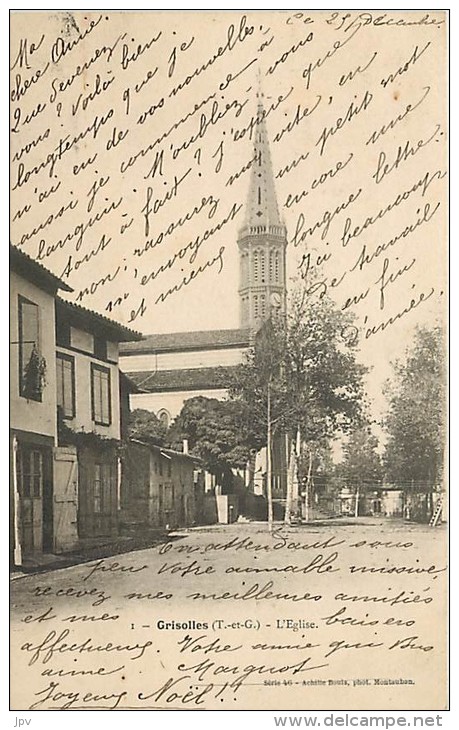 Ce 25 Décembre
Ma
chère Amie.
Que devenez
vous? Voilà bien.
longtemps que je
n'ai eu de vos nouvelles,
aussi je commence à
languir. M'oubliez-vous
tout à fait? J'espère que
non; rassurez moi vite, en
m'envoyant un petit mot
et mieux encore une
longue lettre.
J'ai beaucoup
de travail
en fin
d'année.
En attendant sous
peu votre aimable missive,
recevez mes meilleures amitiés
et mes baisers
1 — Grisolles (T.-et-G.) - L'Eglise.
affectueux. Votre amie qui vous
aime Margnot
Joyeux Noël!!
Série 46 - Achille Bouis, phot. Montauban.
www.delcampe.net
jpv